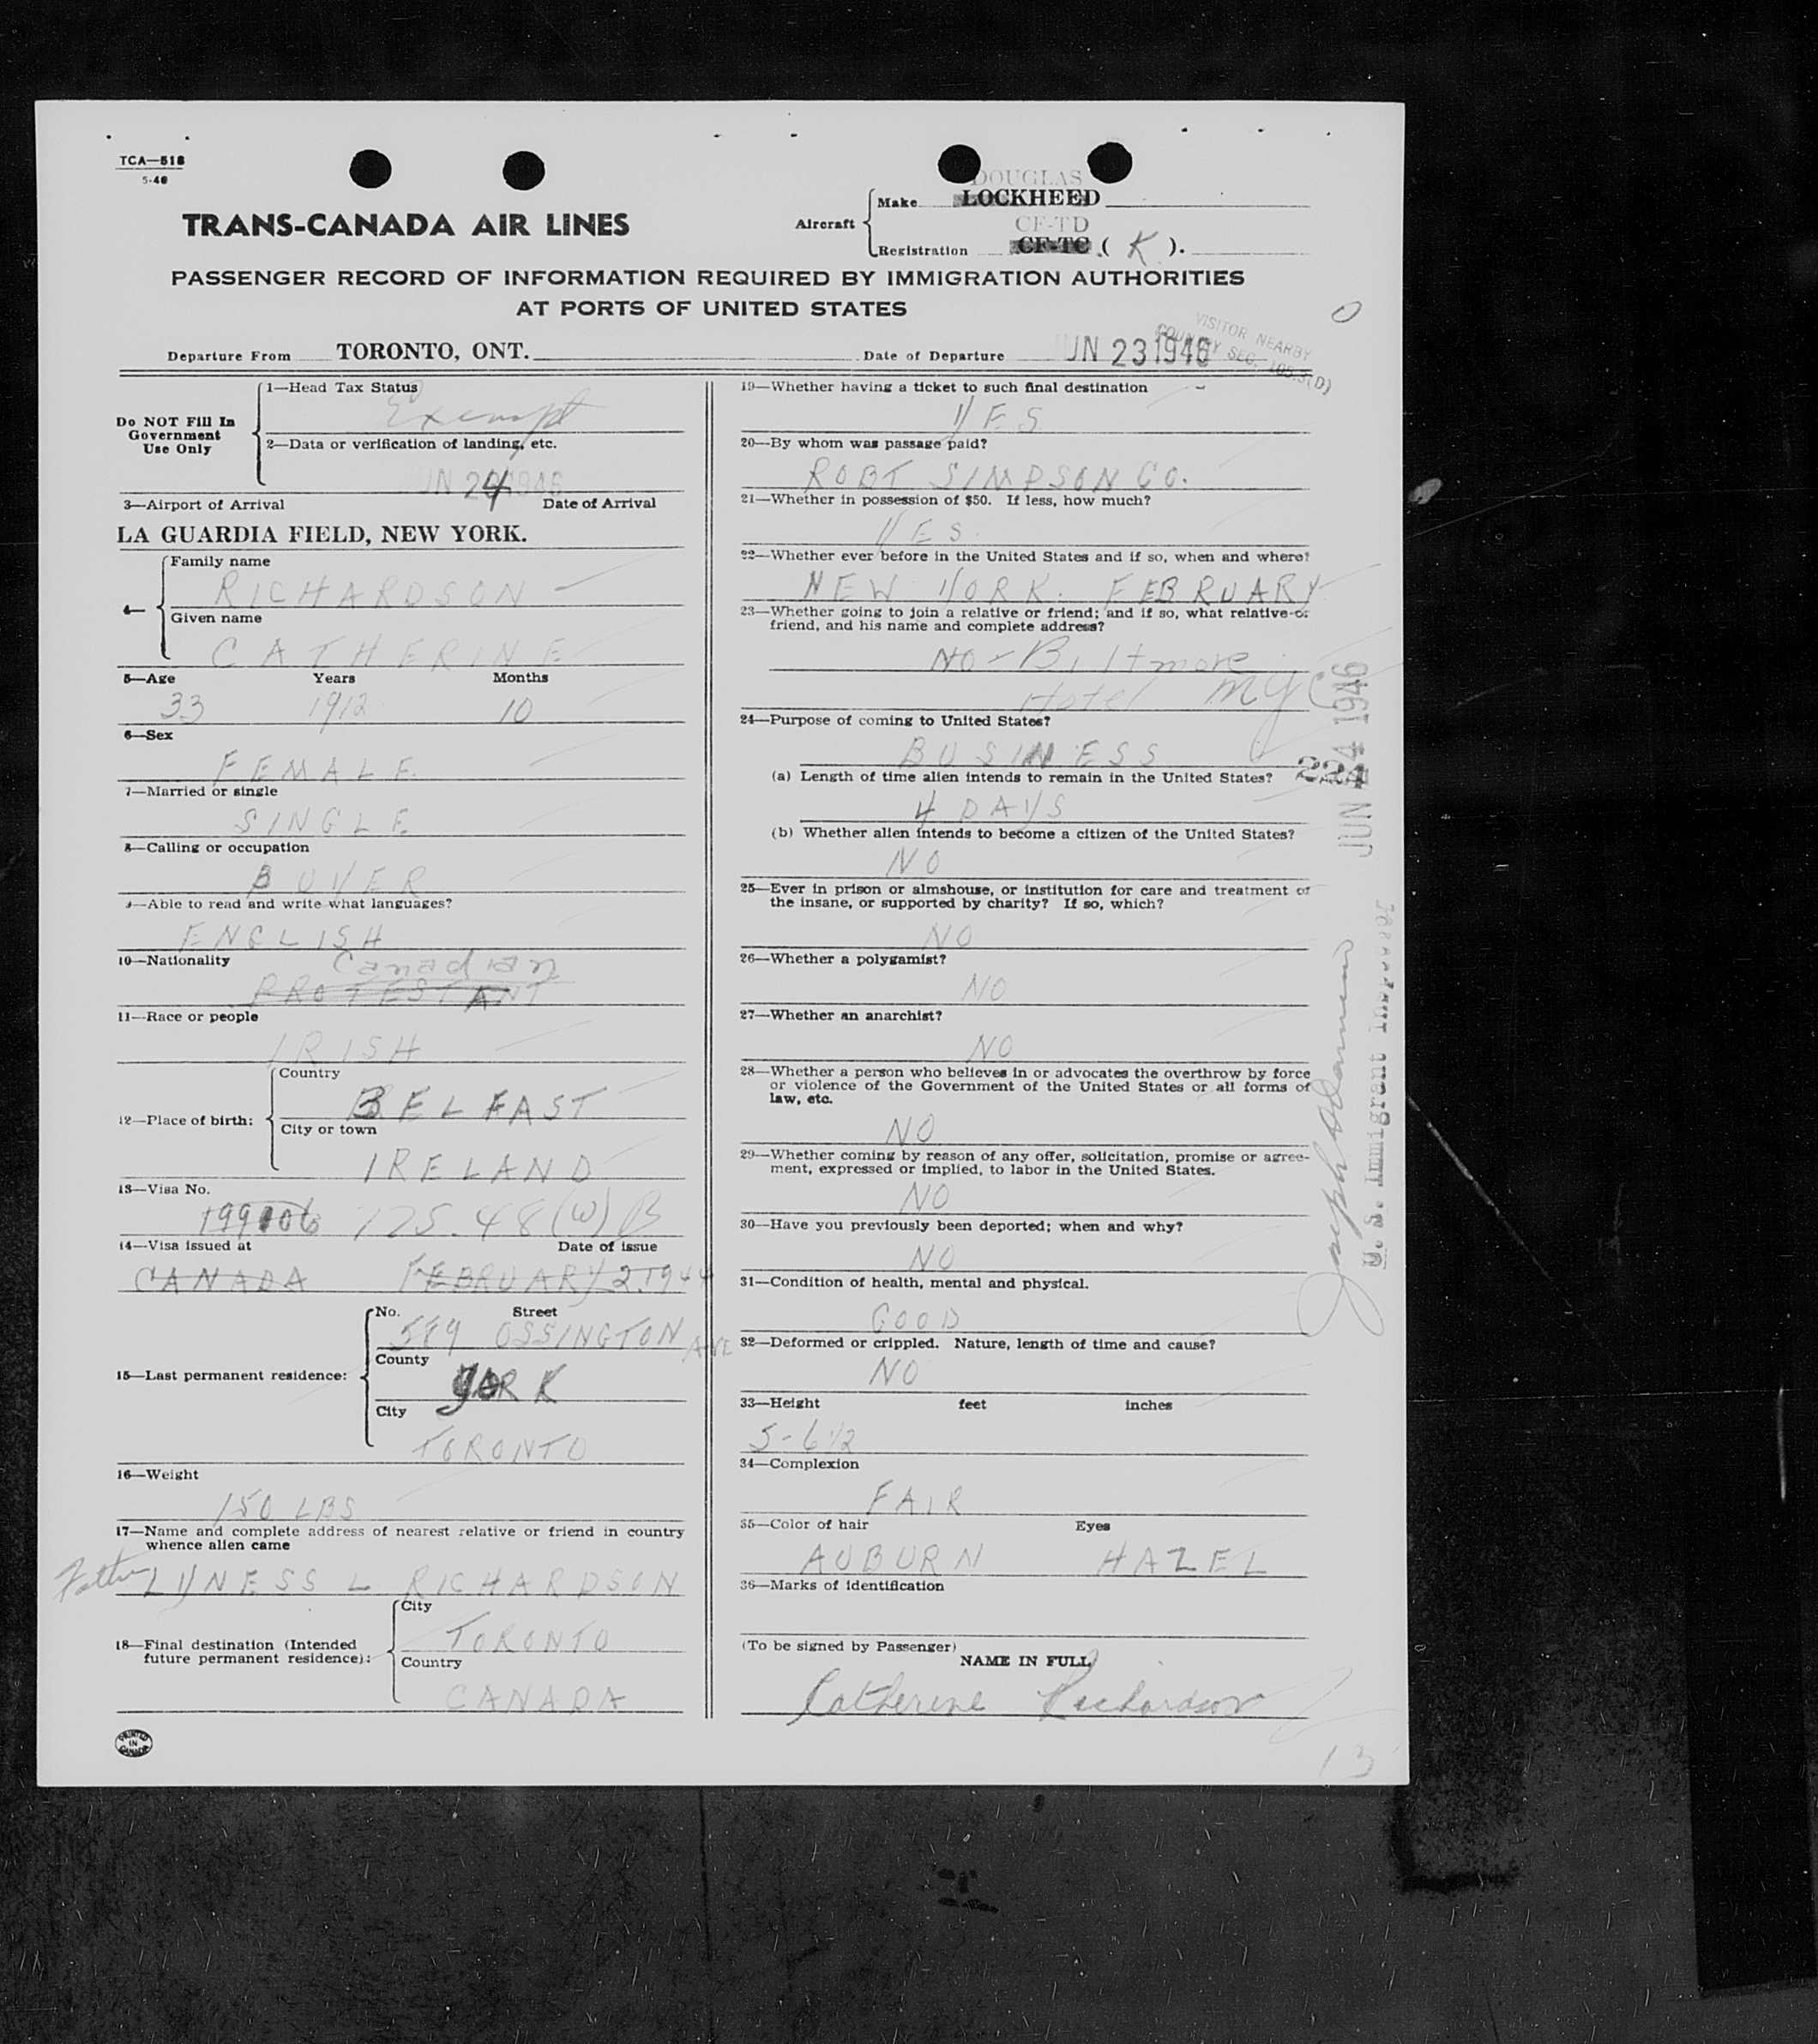 TCA—518
5-46
TRANS-CANADA AIR LINES
Aircraft
Make
DOUGLAS
LOCKHEED
CF-TD
Registration CF-TC ( K ).
PASSENGER RECORD OF INFORMATION REQUIRED BY IMMIGRATION AUTHORITIES
AT PORTS OF UNITED STATES
VISITOR NEARBY
COUNTRY SEC. 105.3(D)
Departure From TORONTO, ONT. Date of Departure JUN 23 1946
Do NOT Fill In
Government
Use Only
1—Head Tax Status
Exempt
2—Data or verification of landing, etc.
JUN 24 1946
3—Airport of Arrival Date of Arrival
LA GUARDIA FIELD, NEW YORK.
4—
Family name
RICHARDSON
Given name
CATHERINE
5—Age Years Months
33 1912 10
6—Sex
FEMALE
7—Married or single
SINGLE
8—Calling or occupation
BUYER
9—Able to read and write what languages?
ENGLISH
10—Nationality Canadian
PROTESTANT
11—Race or people
IRISH
12—Place of birth:
Country
BELFAST
City or town
IRELAND
13—Visa No.
125.48 (W) B
14—Visa issued at Date of issue
CANADA FEBRUARY 2. 1944
15—Last permanent residence:
No. Street
589 OSSINGTON AVE
County
YORK
City
TORONTO
16—Weight
150 LBS
17—Name and complete address of nearest relative or friend in country
whence alien came
Father LYNESS L RICHARDSON
18—Final destination (Intended
future permanent residence):
City
TORONTO
Country
CANADA
PRINTED
IN
CANADA
19—Whether having a ticket to such final destination
YES
20—By whom was passage paid?
ROBT SIMPSON CO.
21—Whether in possession of $50. If less, how much?
YES
22—Whether ever before in the United States and if so, when and where?
NEW YORK. FEBRUARY
23—Whether going to join a relative or friend; and if so, what relative or
friend, and his name and complete address?
NO - Biltmore
Hotel NYC
24—Purpose of coming to United States?
BUSINESS
(a) Length of time alien intends to remain in the United States?
4 DAYS
(b) Whether alien intends to become a citizen of the United States?
NO
25—Ever in prison or almshouse, or institution for care and treatment of
the insane, or supported by charity? If so, which?
NO
26—Whether a polygamist?
NO
27—Whether an anarchist?
NO
28—Whether a person who believes in or advocates the overthrow by force
or violence of the Government of the United States or all forms of
law, etc.
NO
29—Whether coming by reason of any offer, solicitation, promise or agree-
ment, expressed or implied, to labor in the United States.
NO
30—Have you previously been deported; when and why?
NO
31—Condition of health, mental and physical.
GOOD
32—Deformed or crippled. Nature, length of time and cause?
NO
33—Height feet inches
5-6 1/2
34—Complexion
FAIR
35—Color of hair Eyes
AUBURN HAZEL
36—Marks of identification
(To be signed by Passenger)
NAME IN FULL
Catherine Richardson
13
JUN 24 1946
224
U. S. Immigrant Inspector